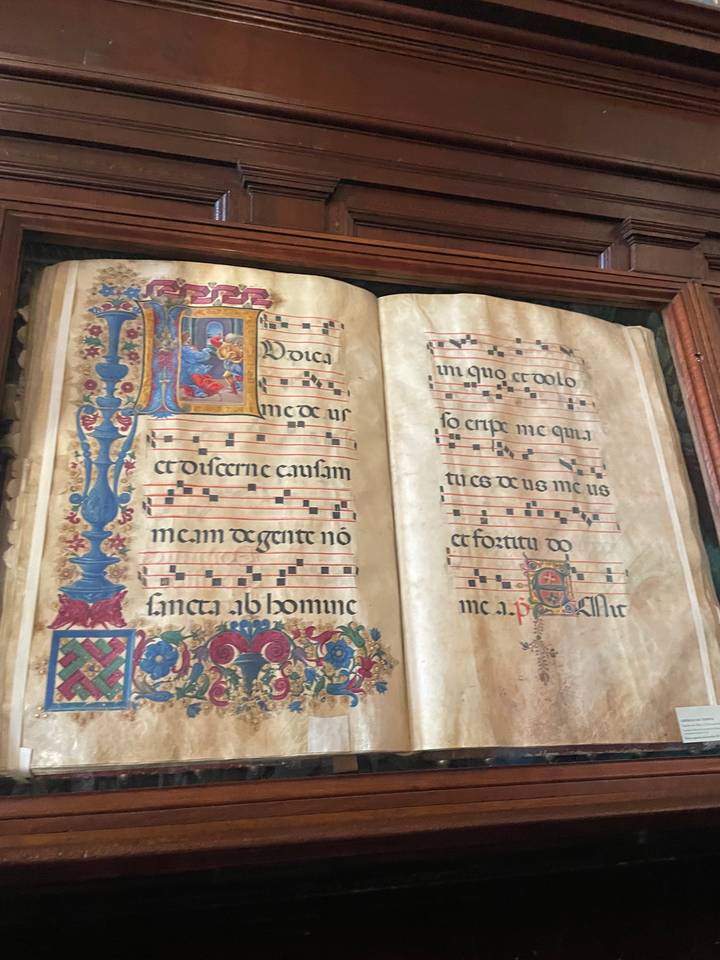 IUdica
me de us
et discerne causam
meam de gente nõ
sancta ab homine
ini quo et dolo
so eripe me quia
tu es de us me us
et fortitu do
me a. p̄ EMit